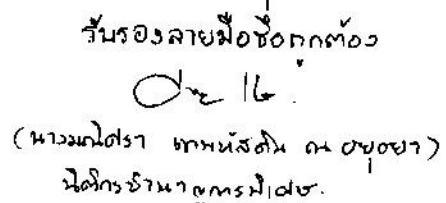 รับรองลายมือชื่อถูกต้อง
(นางมณีศรา เทพหัสดิน ณ อยุธยา)
นิติกรชำนาญการพิเศษ.